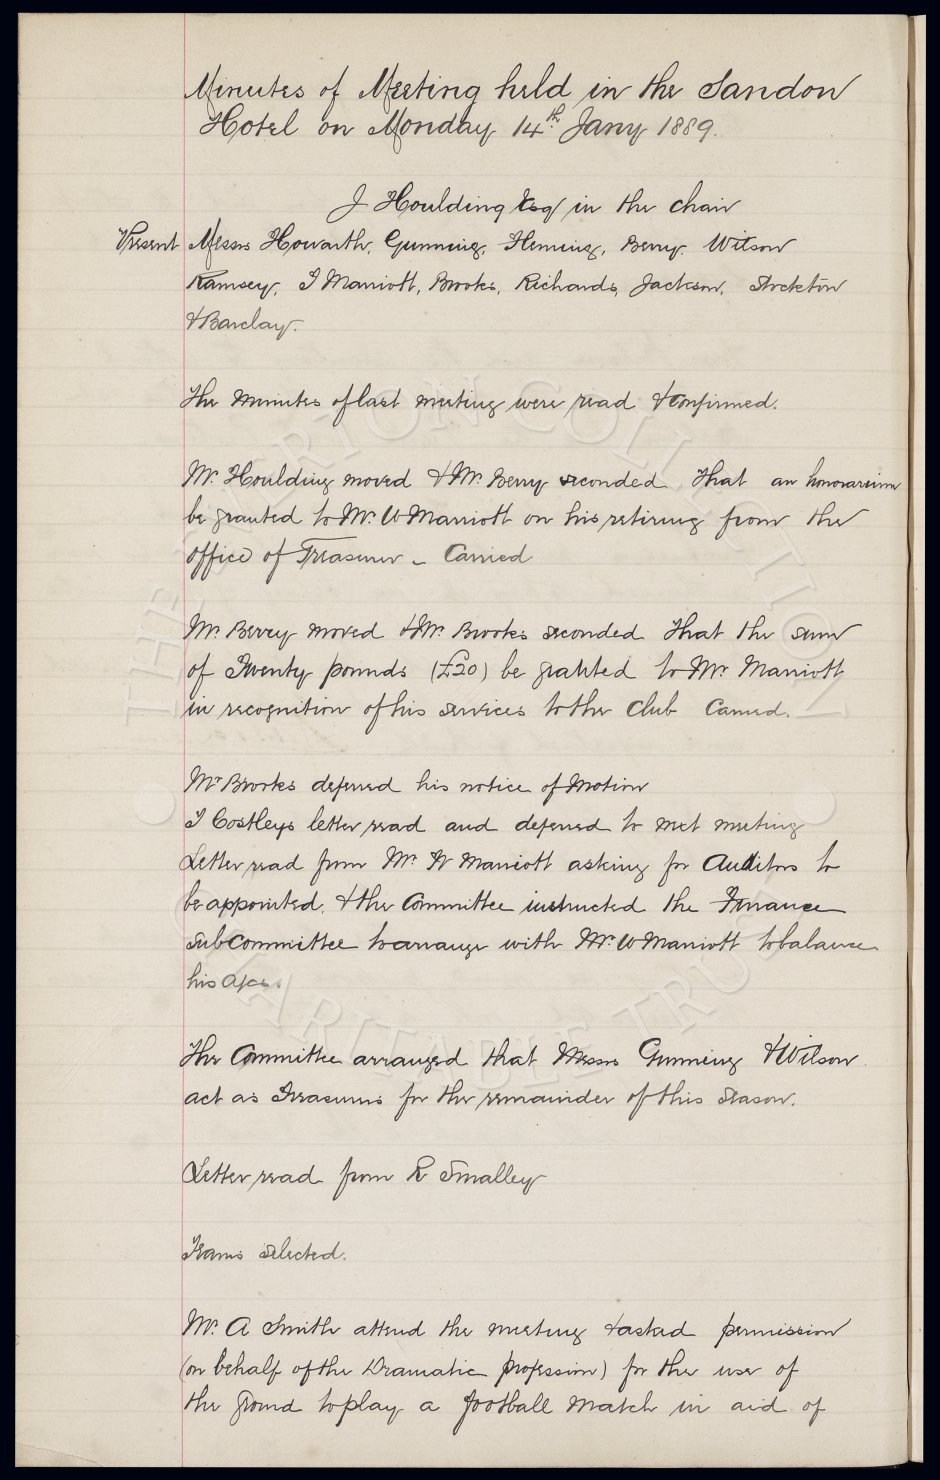 Minutes of Meeting held in the Sandon
Hotel on Monday 14th Jany 1889.
J Houlding Esq in the chair
Present Messrs Howarth, Gunning, Fleming, Berry, Wilson
Ramsey, T Marriott, Brooks, Richards, Jackson, Stockton
& Barclay.
The minutes of last meeting were read & confirmed.
Mr. Houlding moved & Mr. Berry seconded that an honorarium
be granted to Mr. W Marriott on his retiring from the
office of Treasurer - Carried
Mr. Berry moved & Mr. Brooks seconded that the sum
of Twenty pounds (£20) be granted to Mr. Marriott
in recognition of his services to the Club Carried.
Mr Brooks deferred his notice of Motion
T Costleys letter read and deferred to next meeting
Letter read from Mr. W Marriott asking for Auditors to
be appointed. & the Committee instructed the Finance
sub Committee to arrange with Mr. W Marriott to balance
his a/cs.
The Committee arranged that Messrs Gunning & Wilson
act as Treasurers for the remainder of this season.
Letter read from R Smalley
Teams selected.
Mr. A Smith attend the meeting & asked permission
(on behalf of the Dramatic profession) for the use of
the ground to play a football match in aid of
THE EVERTON COLLECTION
CHARITABLE TRUST